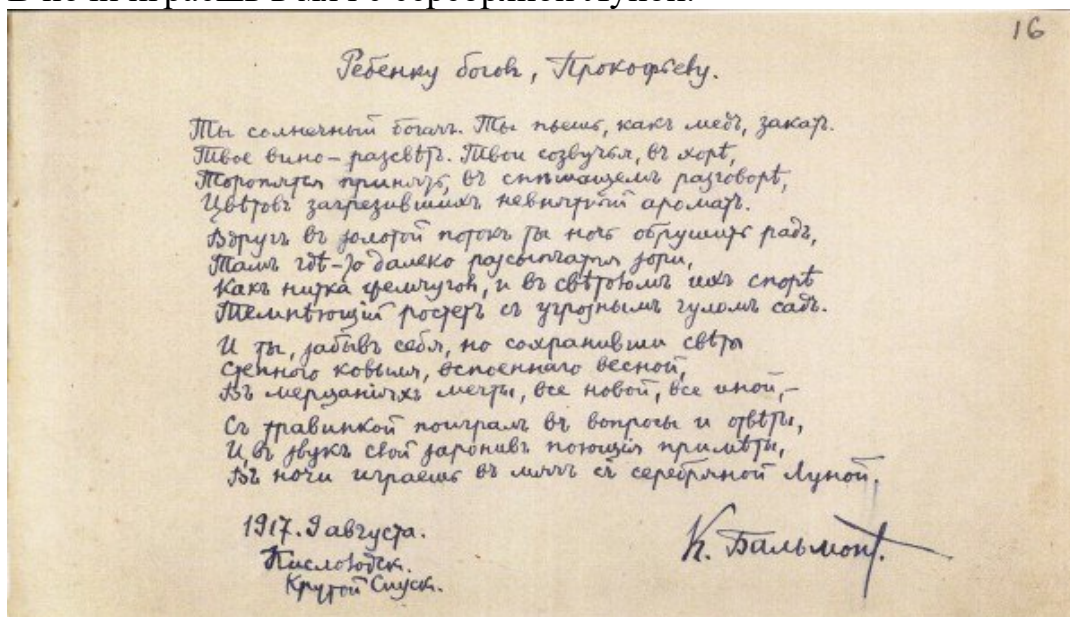 В ночи играешь в мяч с серебряной луной.
16
Ребенку боговъ, Прокофьеву.
Ты солнечный богачъ. Ты пьешь, какъ медъ, закатъ.
Твое вино – разсвѣтъ. Твои созвучья, въ хорѣ,
Торопятся принять, въ спѣшащемъ разговорѣ,
Цвѣтовъ загрезившихъ невнятный ароматъ.
Вдругъ въ золотой потокъ ты ночь обрушить радъ,
Тамъ гдѣ-то далеко разсыпчатыя зори,
Какъ нитка жемчуговъ, и въ свѣтовомъ ихъ спорѣ
Темнѣющій ростетъ съ угрознымъ гуломъ садъ.
И ты, забывъ себя, но сохранивши свѣты
Степного ковыля, вспоеннаго весной,
Въ мерцаніяхъ мечты, все новой, все иной,–
Съ травинкой поигралъ въ вопросы и отвѣты,
И, въ звукъ свой заронивъ поющія примѣты,
Въ ночи играешь въ мячъ съ серебряной Луной.
1917. 9 августа.
Кисловодск.
Крутой Спуск.
К. Бальмонт.